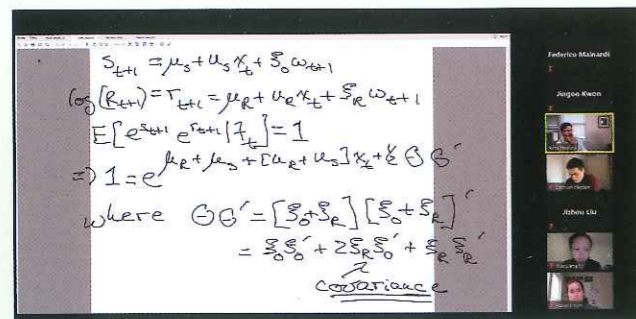 S_{t+1} = μ_s + u_s x_t + ξ_0 ω_{t+1}
log(R_{t+1}) = r_{t+1} = μ_R + u_R x_t + ξ_R ω_{t+1}
E[e^{s_{t+1}} e^{r_{t+1}} | F_t] = 1
=> 1 = e^{μ_R + μ_s + [u_R + u_s] x_t + ½ σσ'}
where σσ' = [ξ_0 + ξ_R] [ξ_0 + ξ_R]'
= ξ_0 ξ_0' + 2 ξ_R ξ_0' + ξ_R ξ_R'
covariance
Federico Mainardi
Jingoo Kwon
Jizhou Liu